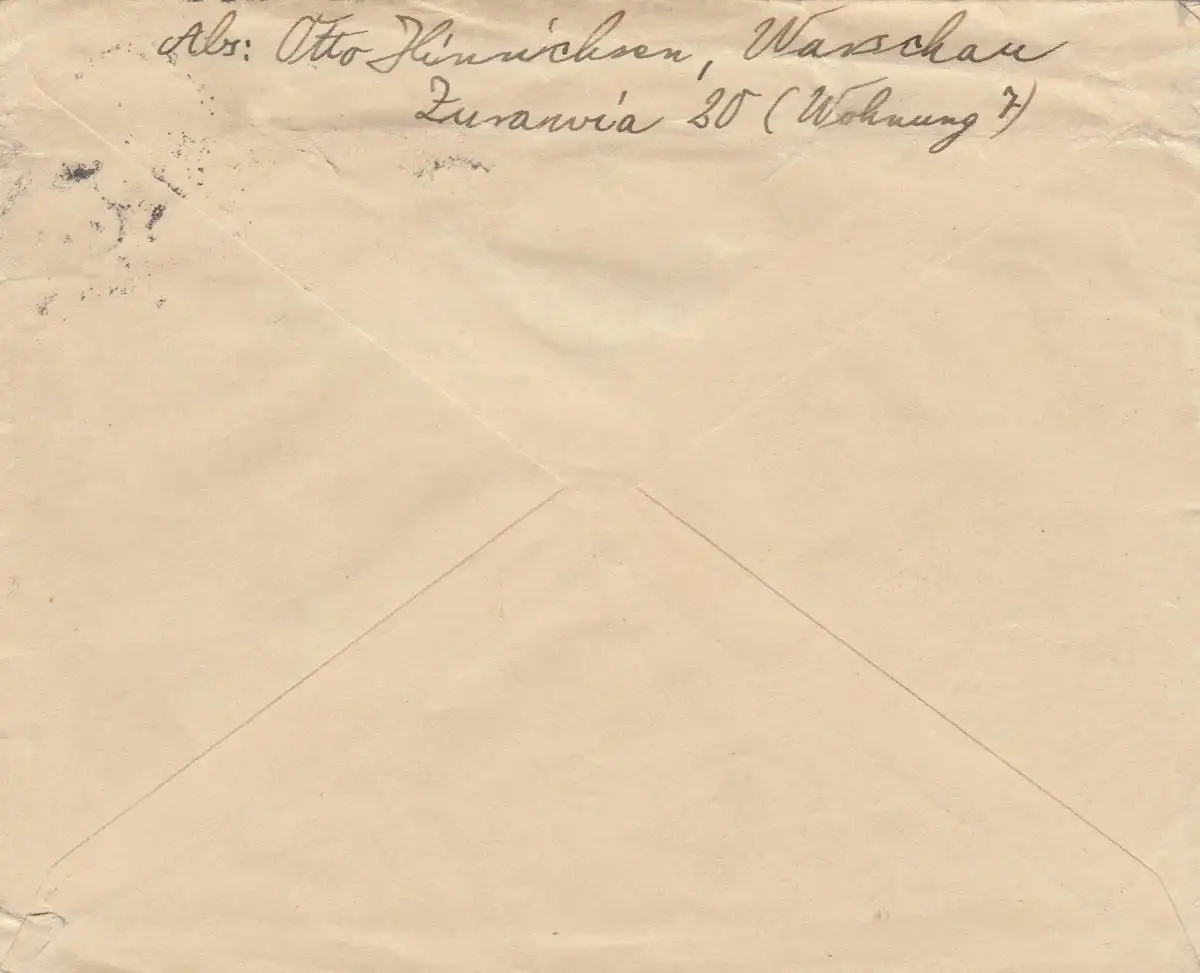 Abs: Otto Hinrichsen, Warschau
Zurawia 20 (Wohnung 7)